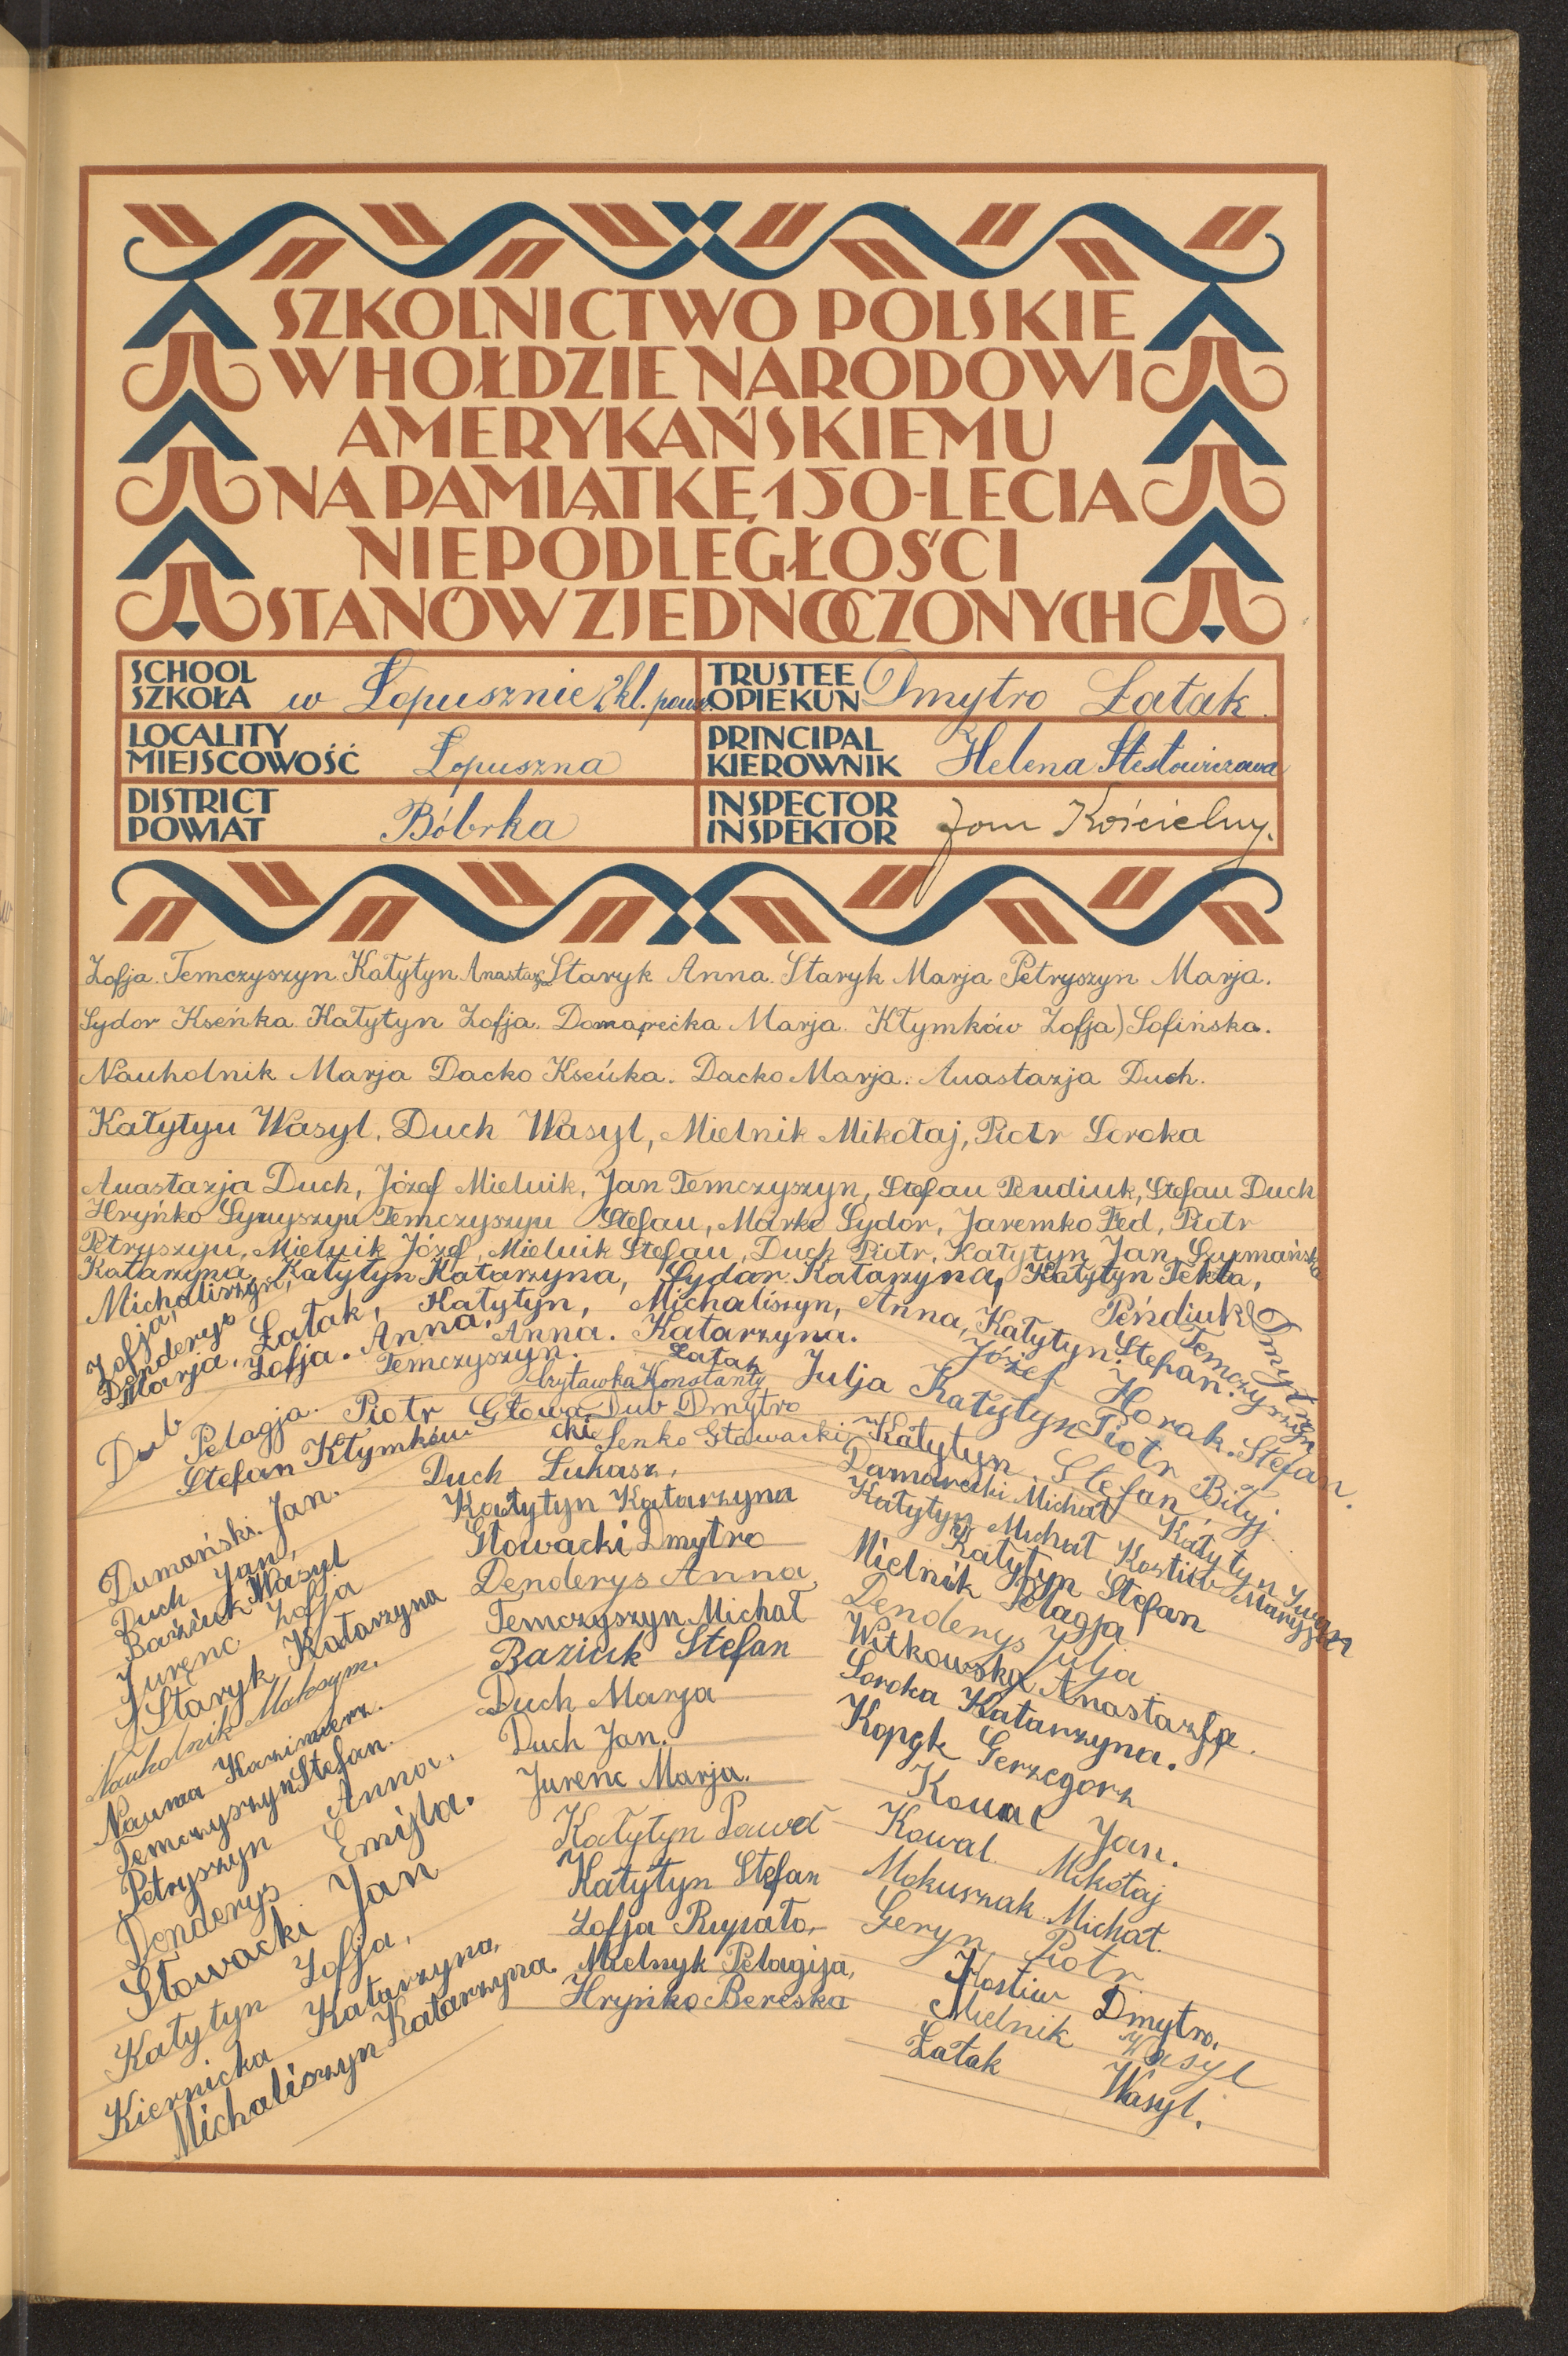 SZKOLNICTWO POLSKIE
W HOŁDZIE NARODOWI
AMERYKAŃSKIEMU
NA PAMIĄTKĘ 150-LECIA
NIEPODLEGŁOŚCI
STANÓW ZJEDNOCZONYCH
SCHOOL
SZKOŁA w Łopusznie 2 kl. pow.
TRUSTEE
OPIEKUN Dmytro Łatak.
LOCALITY
MIEJSCOWOŚĆ Łopuszna
PRINCIPAL
KIEROWNIK Helena
DISTRICT
POWIAT Bóbrka
INSPECTOR
INSPEKTOR Jan Kościelny.
Zofja Temczyszyn. Katytyn Staryk Anna. Staryk Marja Petryszyn Marja.
Sydor Kseńka. Katytyn Zofja. Marja. Kłymków Zofja) Sofińska.
Nauholnik Marja Dacko Kseńka. Dacko Marja. Anastazja Duch.
Katytyn Wasyl, Duch Wasyl, Mielnik Mikołaj, Piotr Soroka
Anastazja Duch, Józef Mielnik, Jan Temczyszyn, Stefan Pendiuk, Stefan Duch
Hryńko Temczyszyn Stefan, Marko Sydor, Jaremko Fed, Piotr
Petryszyn, Mielnik Józef, Mielnik Stefan, Duch Piotr, Katytyn Jan,
Katarzyna, Katytyn Katarzyna, Sydor Katarzyna, Katytyn Tekla,
Michaliszyn, Zofja,
Denderys Marja.
Łatak, Zofja.
Katytyn, Anna.
Michaliszyn, Katarzyna.
Anna, Katytyn Józef
Peńdiuk Dmytro
Stefan.
Temczyszyn Stefan.
Temczyszyn. Anna.
Łatak Julja
Horak Piotr
Dub Pelagja.
Konstanty
Katytyn Stefan
Biłyj.
Piotr Głowacki
Dub Dmytro
Stefan Kłymków
Senko Głowacki
Katytyn
Katytyn Iwan
Dumański Jan.
Duch Jan,
Baziuk Wasyl
Jurenc Zofja
Staryk Katarzyna
Nauholnik Maksym.
Nauma Kazimierz.
Temczyszyn Stefan.
Petryszyn Anna.
Denderys Emilja.
Głowacki Jan
Katytyn Zofja,
Kiernicka Katarzyna,
Michaliszyn Katarzyna.
Duch Łukasz,
Katytyn Katarzyna
Głowacki Dmytro
Denderys Anna
Temczyszyn Michał
Baziuk Stefan
Duch Marja
Duch Jan.
Jurenc Marja.
Katytyn Paweł
Katytyn Stefan
Zofja
Mielnyk Pelagija,
Hryńko Bereska
Damarecki Michał
Katytyn Michał Kostiw
Katytyn Stefan
Mielnik Pelagja
Denderys Julja
Witkowska Anastazja.
Soroka Katarzyna.
Kopek Gerzegorz
Kowal Jan.
Kowal Mikołaj
Mokuszak Michał.
Geryn Piotr
Kostiw Dmytro,
Mielnik Wasyl
Łatak Wasyl.